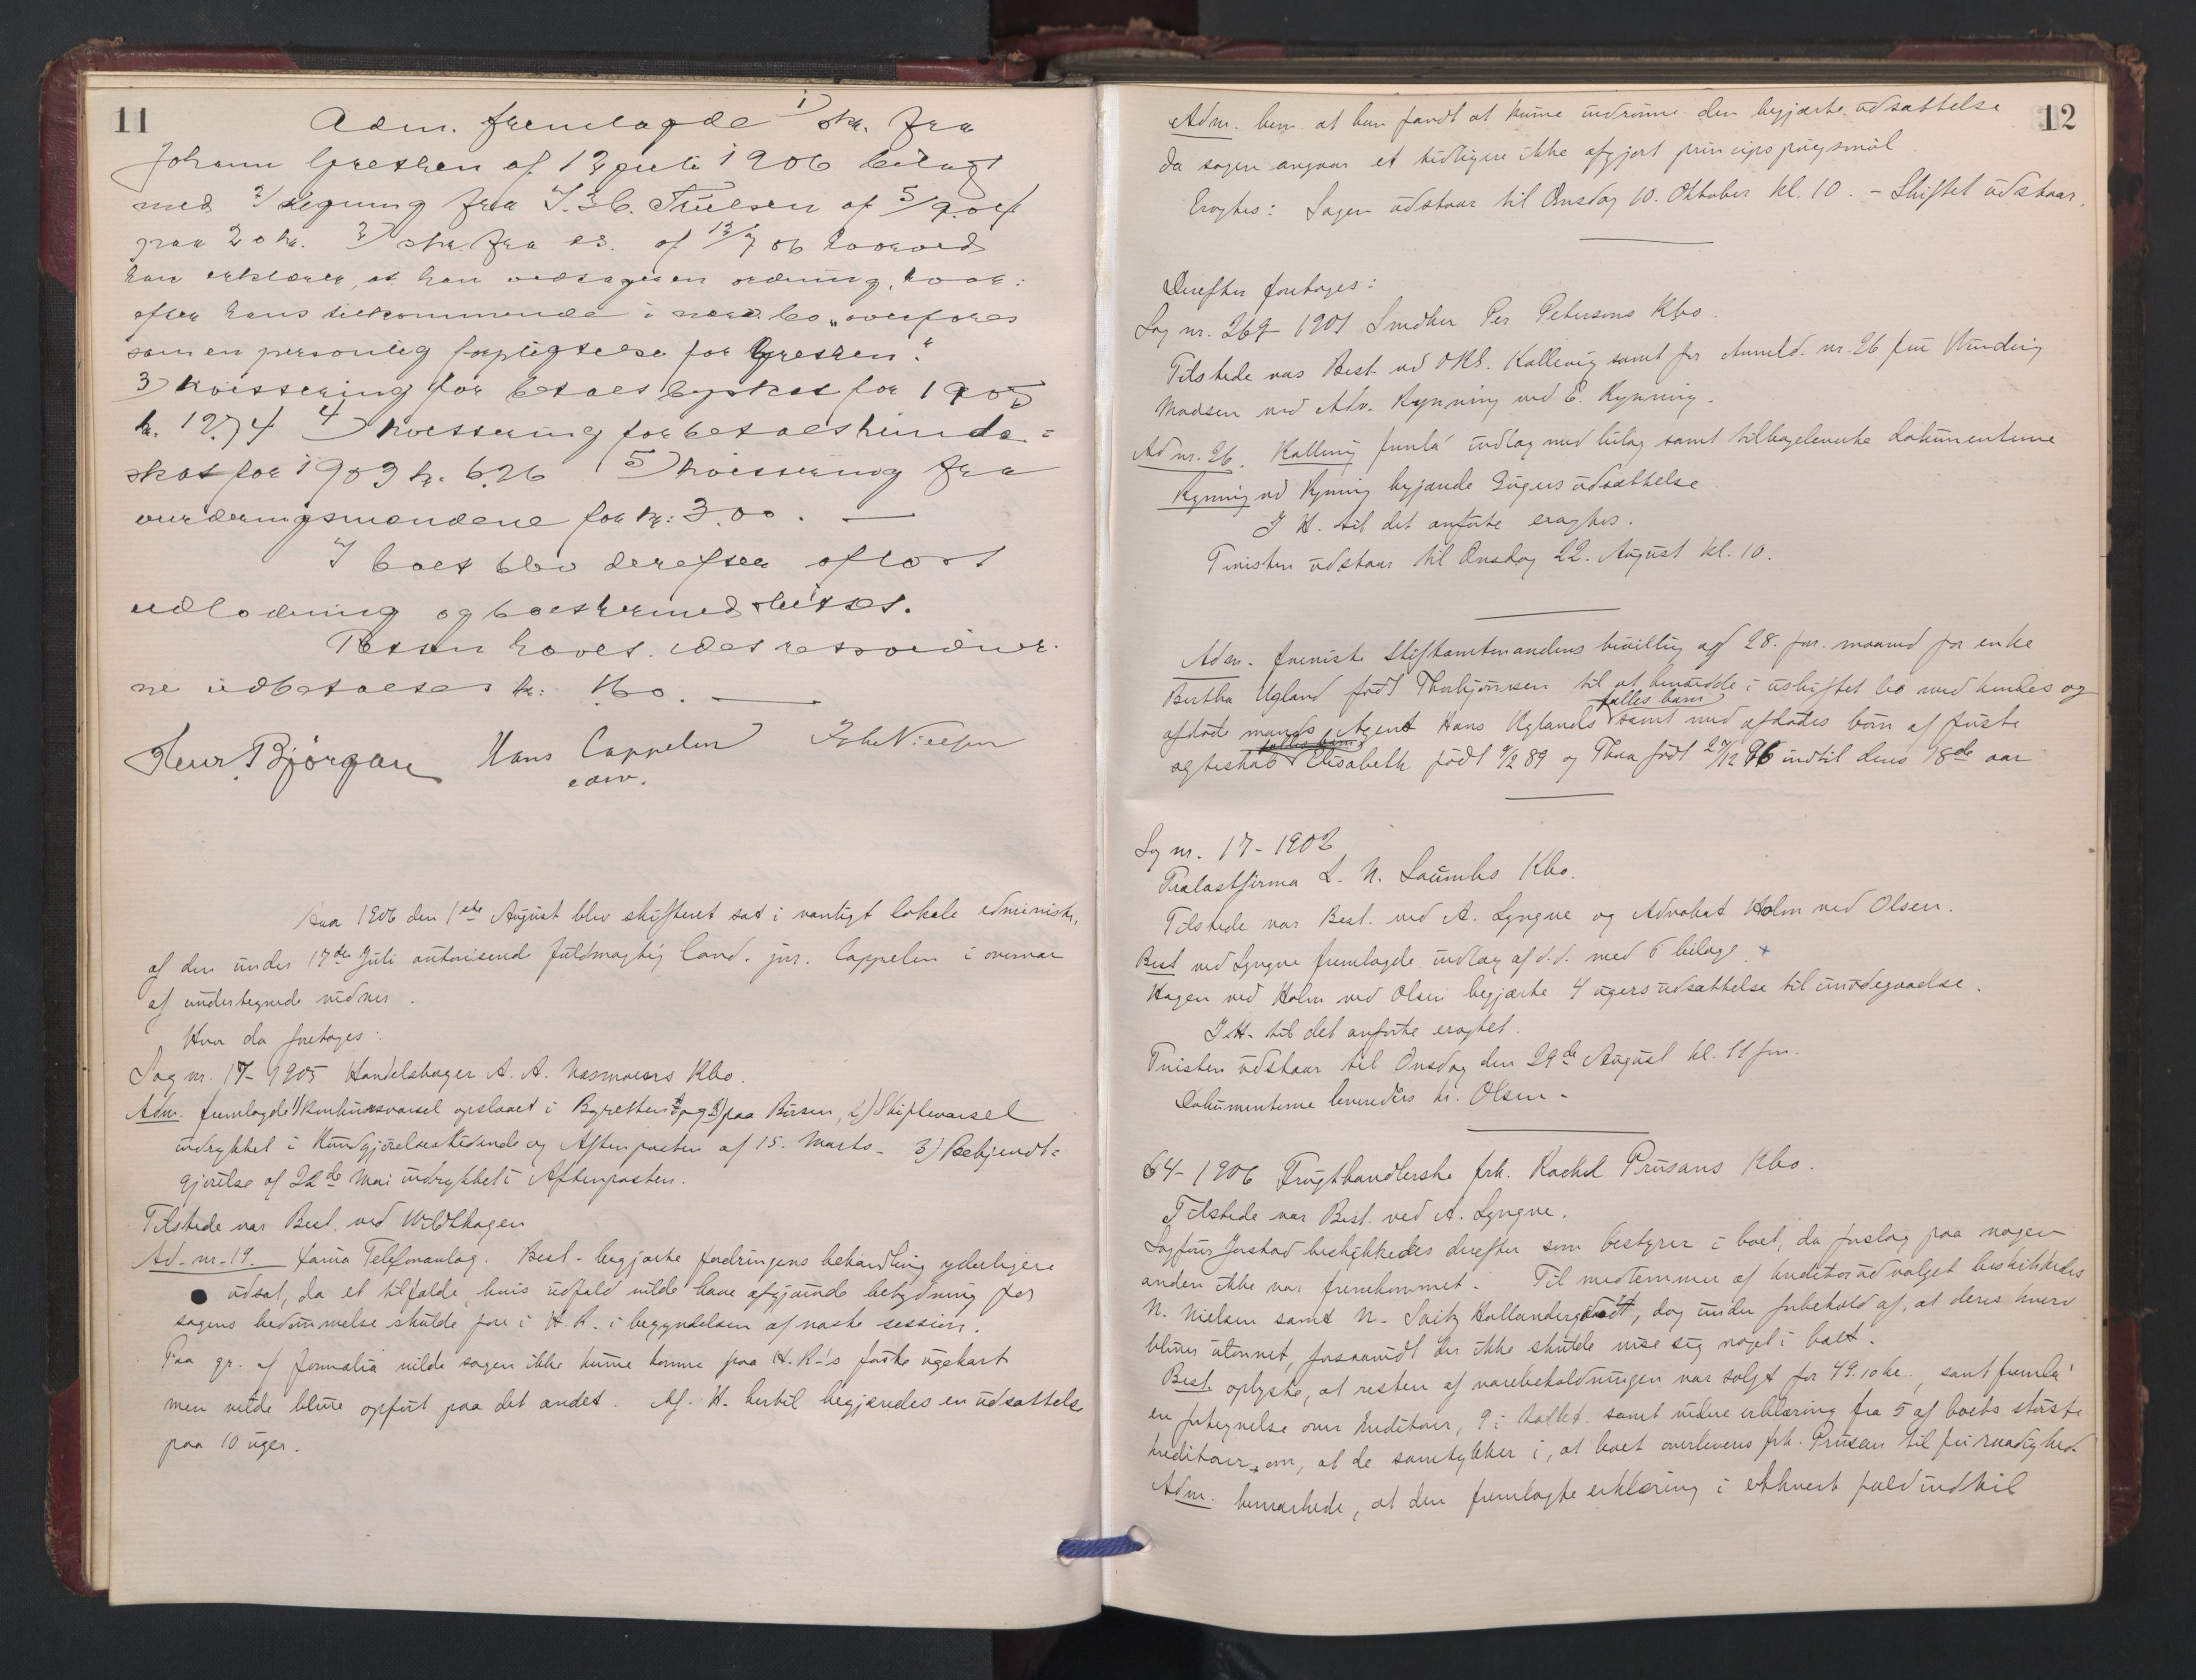 11
Adm. fremlagde 1) skr. fra
Johann Grethen af 12 juli 1906 bilagt
med 2) regning fra
paa 20 kr. 3) skr. fra ds. af 12/7 06 hvorved
han erklærer, at han vedtager en ordning, hvor-
efter hans tilkommende i nærv. bo „overføres
som en personlig forpligtelse for Grethen."
3) kvittering for betalt byskat for 1905
kr. 12.74 4) kvittering for betalt hunde-
skat for 1903 kr. 6.26 5) kvittering fra
vurderingsmændene for kr: 3.00. —
I boet blev derefter afløst
udlodning og boet hermed sluttet.
Retten hævet, idet retsvidner-
ne udbetaltes kr: 1.60. —
Henr. Bjørgan Hans Cappelen
edsv.
Aar 1906 den 1ste August blev skifteret sat i vanligt lokale administr.
af den under 17de Juli autoriserede fuldmægtig Cand. jur. Cappelen i overvær
af undertegnede vidner.
Hvor da foretages:
Sag nr. 17-1905 Handelsbager A. A. Næsmoens Kbo.
Adm. fremlagde 1) konkursvarsel opslaaet i Byretten og paa Børsen, 2) Skiftevarsel
indrykket i Kundgjørelsestidende og Aftenposten af 15. Marts - 3) Bekjendt-
gjørelse af 22de Mai indrykket i Aftenposten.
Tilstede var Best. ved Wildhagen
Ad. nr. 19. Telefonanlæg. Best. begjærte fordringens behandling yderligere
udsat, da et tilfælde, hvis udfald vilde have afgjørende betydning for
sagens bedømmelse skulde fore i H. R. i begyndelsen af næste session.
Paa gr. af formalia vilde sagen ikke kunne komme paa H. R.'s første ugekart
men vilde blive opført paa det andet. Af H. hertil begjæredes en udsættelse
paa 10 uger.
12
Adm. bem. at han fandt at kunne indrømme den begjærte udsættelse
da sagen angaar et tidligere ikke afgjort principspørgsmål.
Eragtes: Sagen udstaar til Onsdag 10. Oktober kl. 10. - Skiftet udstaar.
Derefter foretages:
Sag nr. 269-1901 Snedker Per Petersens Kbo.
Tilstede var Best. ved ORS. Kallevig samt for Anmeld. nr. 26 fru Winding
Madsen ved Adv. Kynning ved E. Kynning.
Ad nr. 26. Kallevig fremla indlæg med bilag samt tilbageleverte dokumenterne
Kynning ved Kynning begjærede 3 ugers udsættelse.
I H. til det anførte eragtes.
Tvisten udstaar til Onsdag 22. August kl. 10.
Adm. fremviste Stiftamtmandens bevilling af 28. for. maaned for enke
Bertha Ugland født Thorbjørnsen til at hensidde i uskiftet bo med hendes og
afdøde mands Agent Hans Uglands fælles barn samt med afdødes børn af første
ægteskab fælles barn Elisabeth født 9/2 89 og Thora født 27/12 96 indtil dens 18de aar
Sag nr. 17-1902
Trælastfirma L. N. Laumbs Kbo.
Tilstede var Best. ved A. Lyngve og Advokat Holm ved Olsen.
Best. ved Lyngve fremlagde indlæg af d.d. med 6 bilage. +
Hagen ved Holm ved Olsen begjærte 4 ugers udsættelse til imødegaaelse.
I H. til det anførte eragtet.
Tvisten udstaar til Onsdag den 29de August kl. 11 fm.
Dokumenterne leveredes hr. Olsen -
64-1906 Frugthandlerske frk. Rachel Prusans Kbo.
Tilstede var Best. ved A. Lyngve.
Sagfører Jorstad beskikkedes derefter som bestyrer i boet, da forslag paa nogen
anden ikke var fremkommet. Til medlemmer af kreditorudvalget beskikkedes
N. Nielsen samt N. Saitz Hollendergadt, dog under forbehold af, at deres hverv
bliver ulønnet, forsaavidt der ikke skulde vise sig noget i boet.
Best. oplyste, at resten af varebeholdningen var solgt for 49.10 kr., samt fremla
en fortegnelse over kreditorer, 9 i tallet samt videre erklæring fra 5 af boets største
kreditorer, om, at de samtykker i, at boet overleveres frk. Prusan til fri raadighed.
Adm. bemærkede, at den fremlagte erklæring i ethvert fald indtil